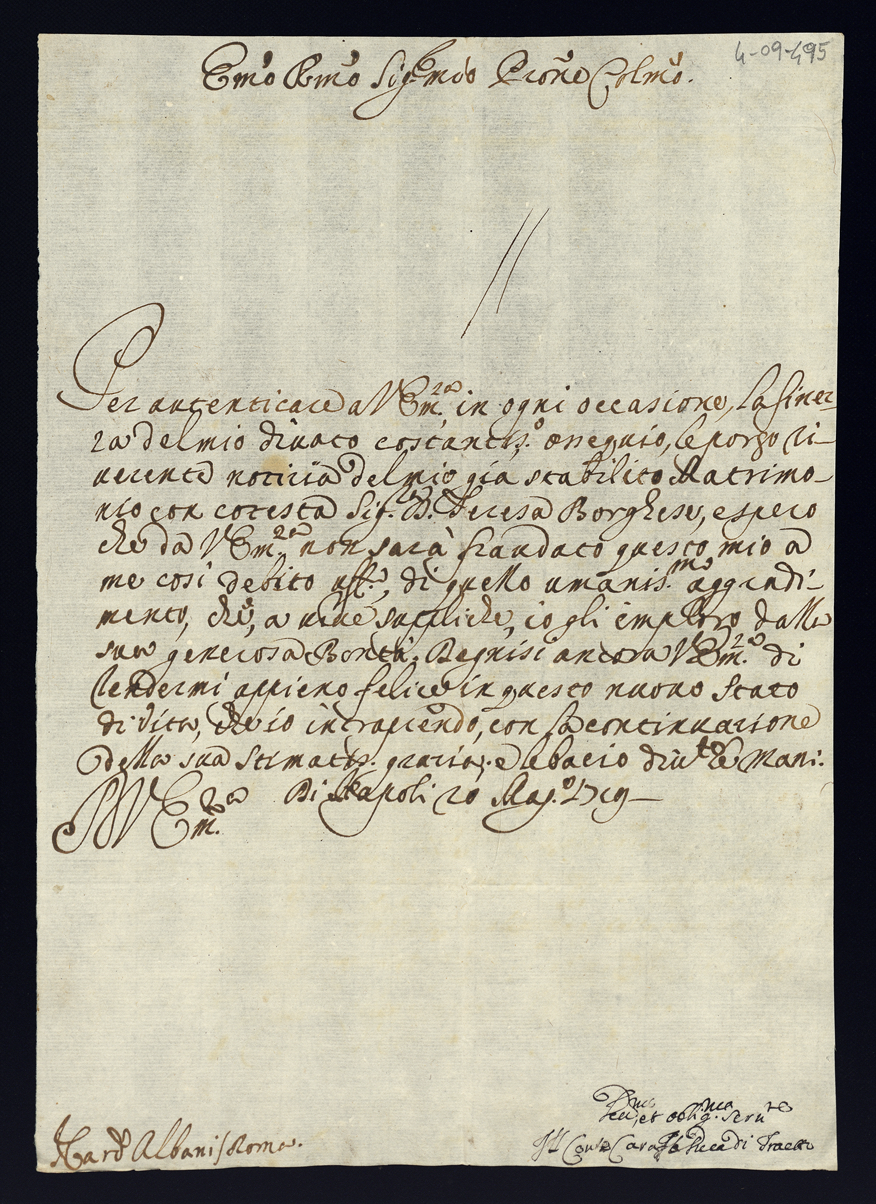 4-09-495
Emō Rmō Sig.r mio Pròne Colmō.
Per autenticare a V Em.za in ogni occasione, la sincer-
za del mio diuoto costantis.o ossequio, le porgo ri-
uerente notizia del mio già stabilito Matrimo-
nio con cotesta Sig.ra D. Teresa Borghese, e spero
che da V Em.za non sarà fraudato questo mio a
me così debito uff.o, di quello umanis.mo aggradi-
mento, che, a uiue suppliche, io gli imploro dalla
sua generosa Bontà. Degnisi ancora V Em.za di
rendermi appieno felice in questo nuouo stato
di vita, che io intraprendo, con la continuazione
della sua stimatis. grazia; e le bacio diu.te le Mani.
Di V Em.za Di Napoli 20 Mag.o 1719
Deu.mo, et oblig.mo Seru.re
Il Conte Carafa Duca di Traetto
Card. Albani / Roma.